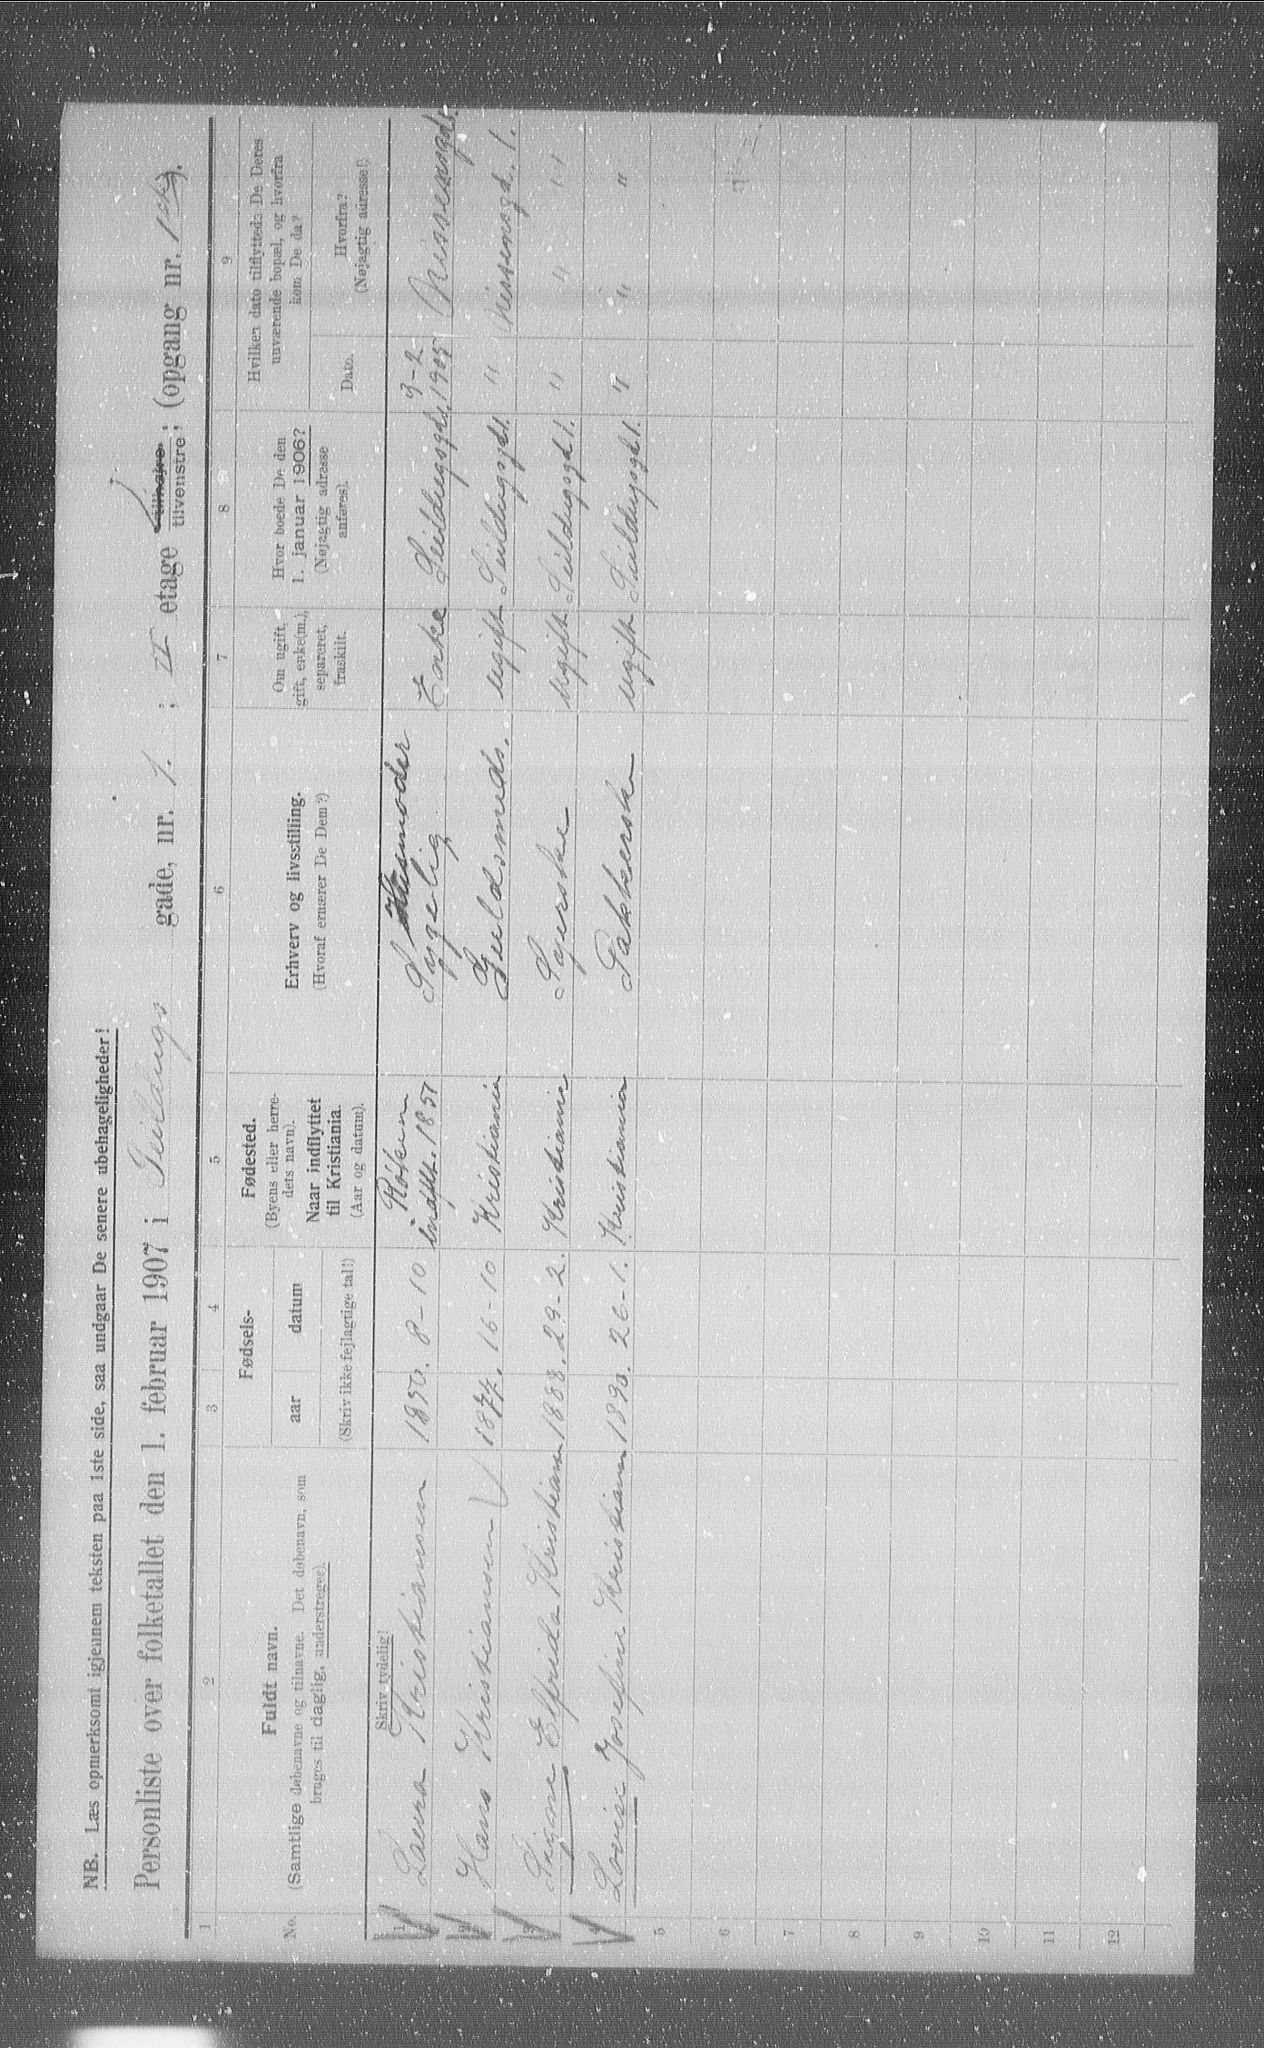 NB. Læs opmerksomt igjennem teksten paa 1ste side, saa undgaar De senere ubehageligheder!
Personliste over folketallet den 1. februar 1907 i Seildugs gade, nr. 1. ; II etage tilhøire tilvenstre; (opgang nr. 1
1 2 3 4 5 6 7 8 9
No.
Fuldt navn.
(Samtlige døbenavne og tilnavne. Det døbenavn, som
bruges til daglig, understreges).
Fødsels-
aar datum
(Skriv ikke fejlagtige tal!)
Fødested.
(Byens eller herre-
dets navn).
Naar indflyttet
til Kristiania.
(Aar og datum).
Erhverv og livsstilling.
(Hvoraf ernærer De Dem?)
Om ugift,
gift, enke(m.),
separeret,
fraskilt.
Hvor boede De den
1. januar 1906?
(Nøjagtig adresse
anføres).
Hvilken dato tilflyttede De Deres
nuværende bopæl, og hvorfra
kom De da?
Dato.
Hvorfra?
(Nøjagtig adresse!)
Skriv tydelig!
1 Laura Kristiansen 1850. 8-10 Røken indflt. 1851 Husmoder Sygelig Enke Seildugsgd. 9-2- 1905 Nissensgd.
2 Hans Kristiansen 1877. 16-10 Kristiania Guldsmeds. ugift Seildugsgd 1. " Nissensgd. 1.
3 Signe Elfrida Kristiansen 1888. 29-2. Kristiania Syerske ugift Seildugsgd 1. " " "
4 Lovise Josefine Kristiansen 1890. 26-1. Kristiania Pakkerske ugift Seildugsgd 1. " " "
5
6
7
8
9
10
11
12